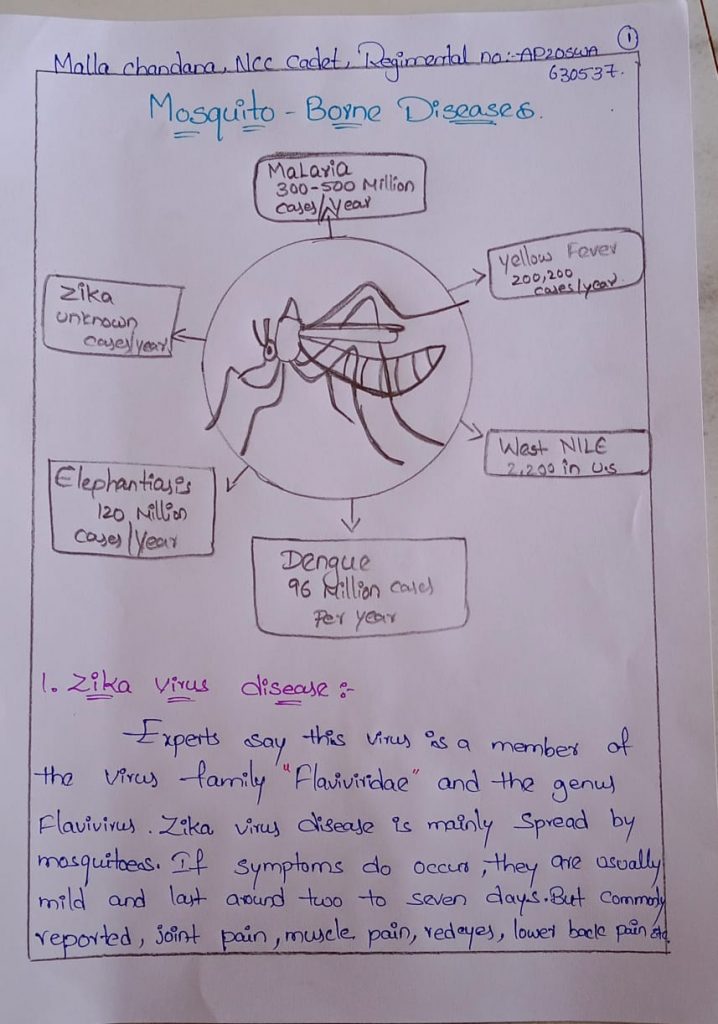 1
Malla chandana, NCC Cadet, Regimental no:-AP20SWA
630537.
Mosquito - Borne Diseases.
MaLaria
300-500 Million
cases/year
yellow Fever
200,200
cases/year.
Zika
unknown
cases/year
West NILE
2,200 in U.S
Elephantiasis
120 Million
cases/Year
Dengue
96 Million cases
Per year
1. Zika virus disease :-
Experts say this virus is a member of
the virus family "Flaviviridae" and the genus
Flavivirus. Zika virus disease is mainly Spread by
mosquitoeas. If symptoms do occur, they are usually
mild and last around two to seven days. But commonly
reported, joint pain, muscle pain, redeyes, lower back pain etc.